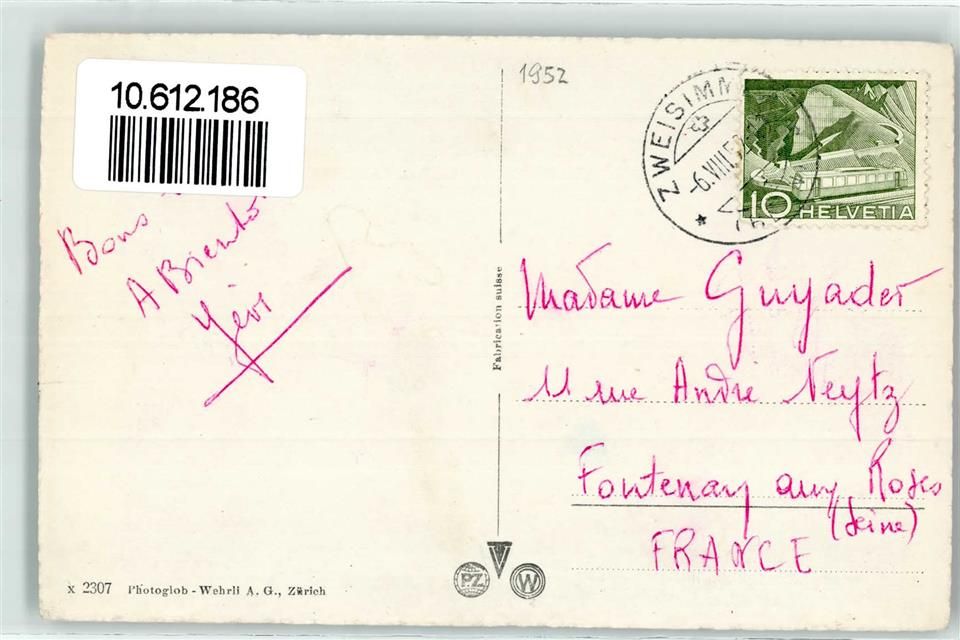 10.612.186
1952
ZWEISIMMEN
-6.VIII.5
10 HELVETIA
Bons
A Bientôt
Fabrication suisse
Madame Guyader
11 rue Andre Neytz
Fontenay aux Roses
(Seine)
FRANCE
x 2307 Photoglob - Wehrli A. G., Zürich
PZ W